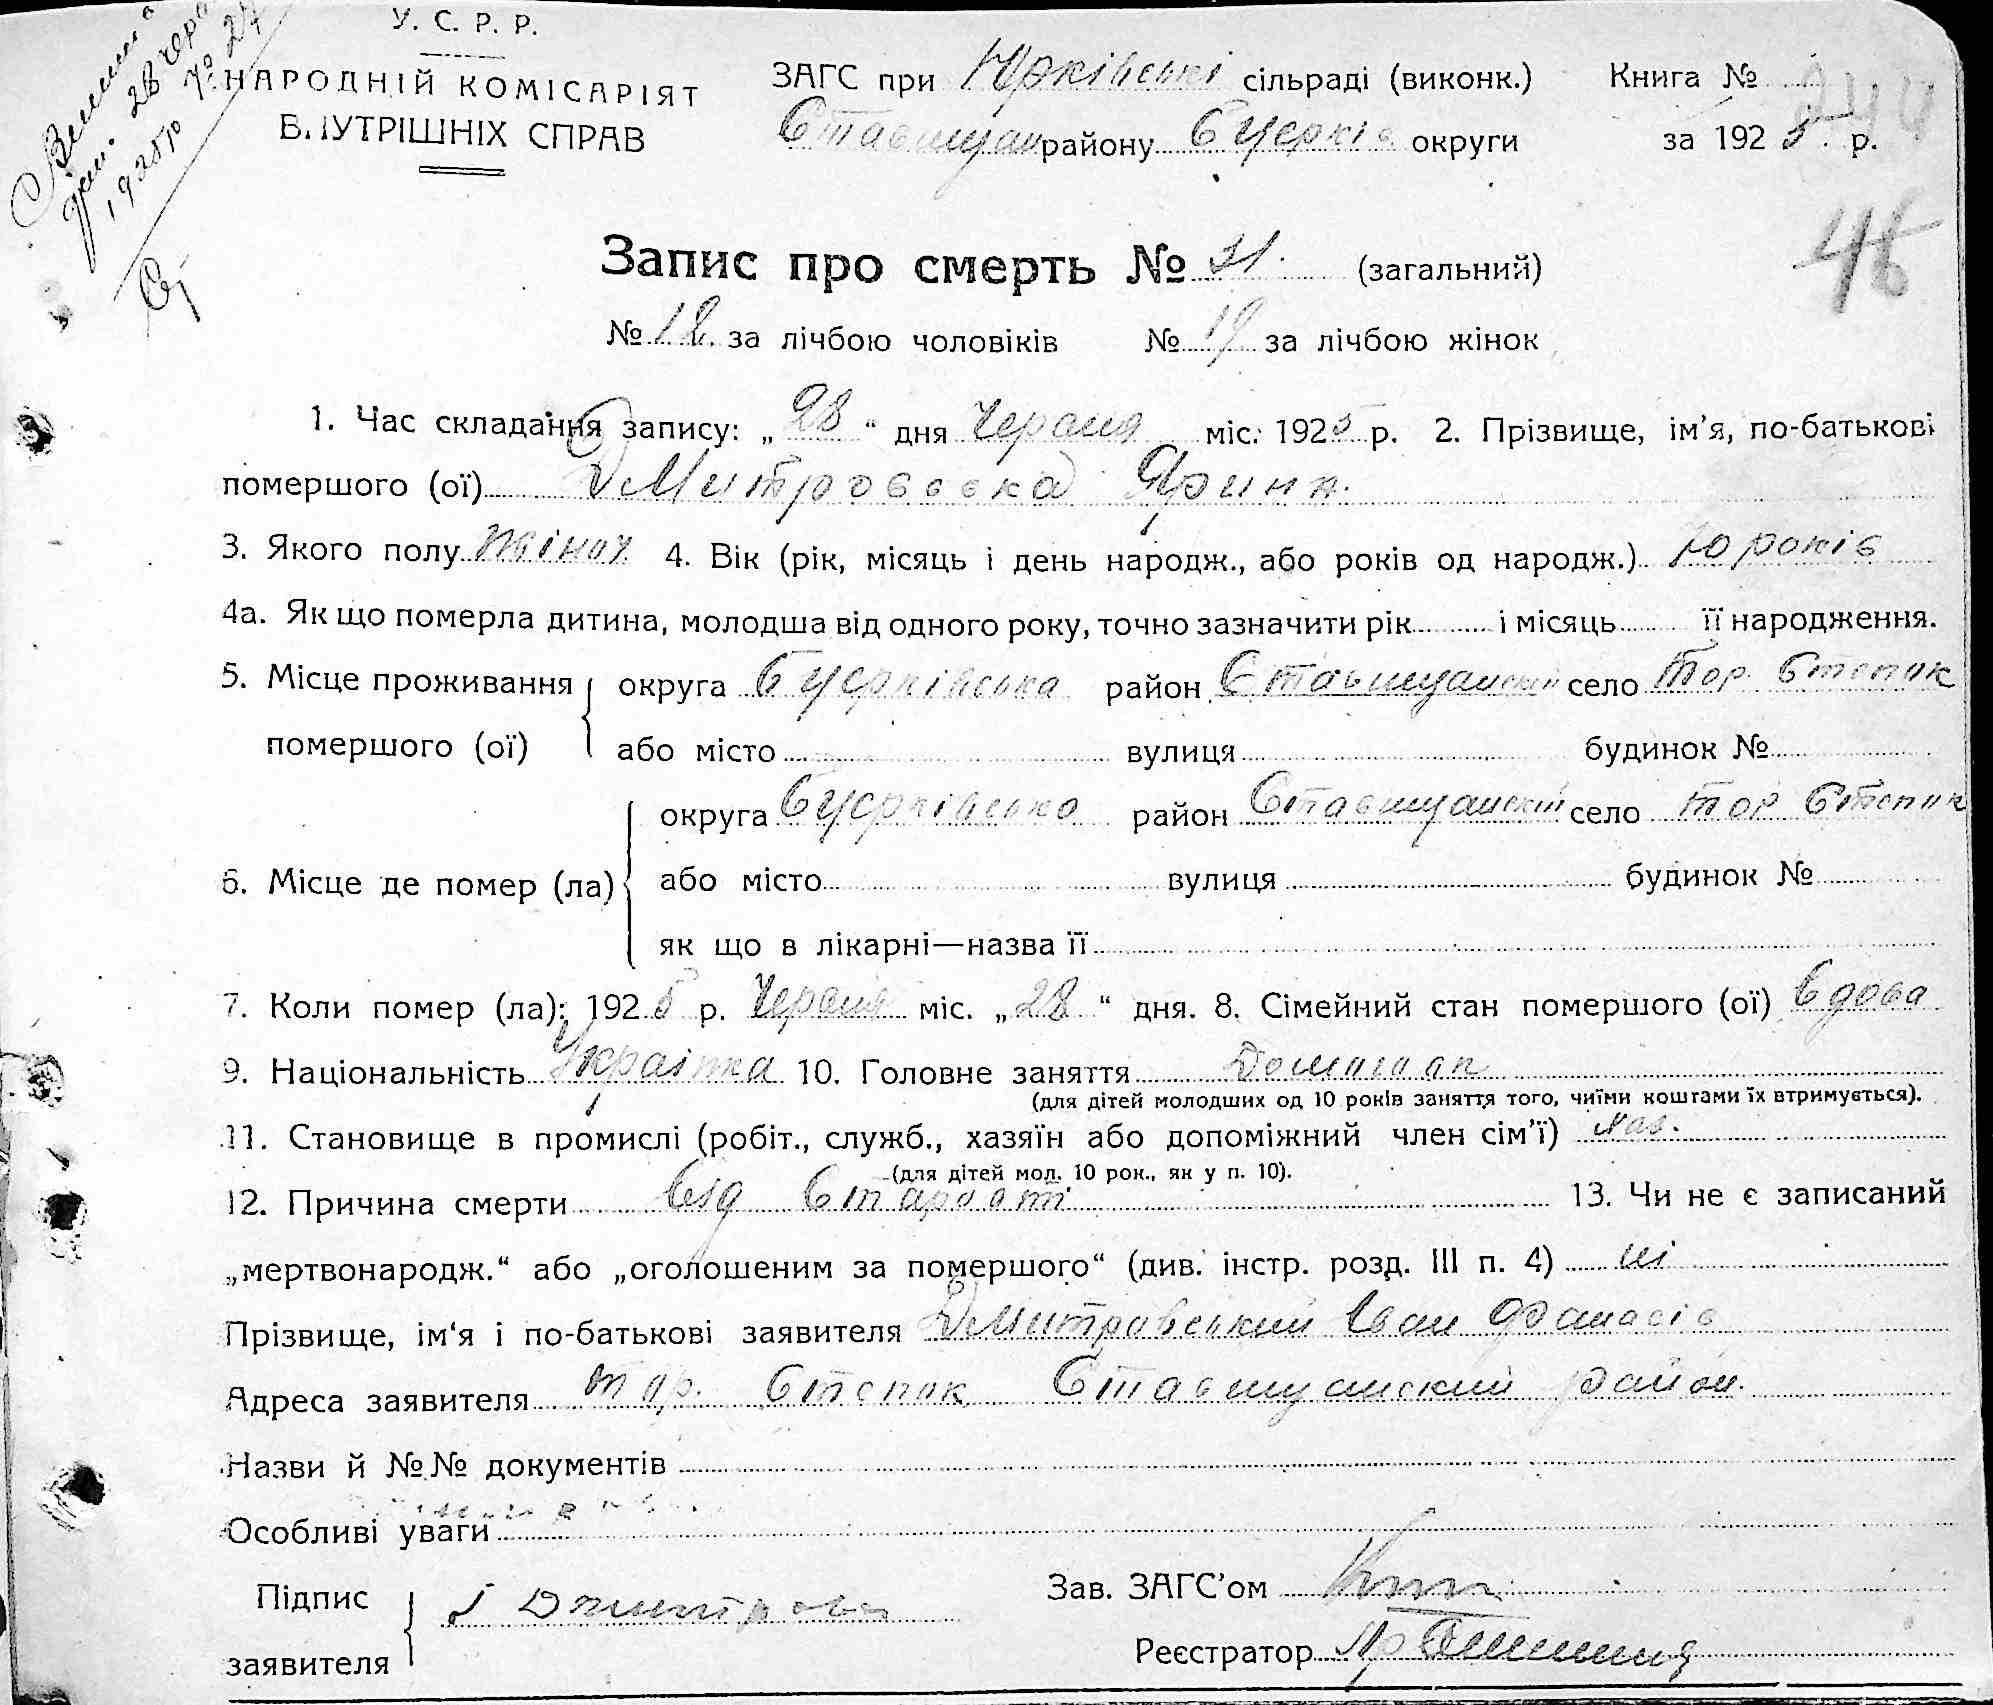 28 черв
1925 р № 27
У. С. Р. Р.
НАРОДНІЙ КОМІСАРІЯТ
ВНУТРІШНІХ СПРАВ
ЗАГС при Юрківські сільраді (виконк.)
Ставищан району Б Церків округи
Книга №
за 1925 р.
46
Запис про смерть № 31. (загальний)
№ 12 за лічбою чоловіків № 19 за лічбою жінок
1. Час складання запису: „28“ дня Червня міс. 1925 р. 2. Прізвище, ім’я, по-батькові
помершого (ої) Дмитровська Ярина.
3. Якого полу жіноч 4. Вік (рік, місяць і день народж., або років од народж.) 70 років
4а. Як що померла дитина, молодша від одного року, точно зазначити рік і місяць її народження.
5. Місце проживання помершого (ої)
округа Б Церківська район Ставищанский село Тор Степок
або місто вулиця будинок №
6. Місце де помер (ла)
округа Б Церківсько район Ставищанский село тор Степок
або місто вулиця будинок №
як що в лікарні—назва її
7. Коли помер (ла): 1925 р. Червня міс. „28“ дня. 8. Сімейний стан помершого (ої) вдова
9. Національність Українка 10. Головне заняття
(для дітей молодших од 10 років заняття того, чиїми коштами їх втримується).
11. Становище в промислі (робіт., служб., хазяїн або допоміжний член сім’ї)
(для дітей мол. 10 рок., як у п. 10).
12. Причина смерти від старости 13. Чи не є записаний
„мертвонародж.“ або „оголошеним за помершого“ (див. інстр. розд. III п. 4) ні
Прізвище, ім‘я і по-батькові заявителя Дмитровський Іван Фанасів
Адреса заявителя тор. Степок Ставищанский район.
Назви й №№ документів
Особливі уваги
Підпис заявителя І Дмитрови
Зав. ЗАГС’ом
Реєстратор